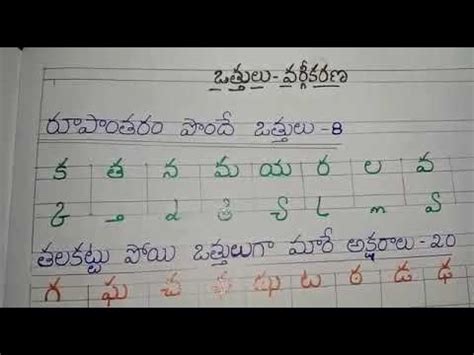 ఒత్తులు - వర్గీకరణ
రూపాంతరం పొందే ఒత్తులు - 8
క త న మ య ర ల వ
్క ్త ్న ్మ ్య ్ర ్ల ్వ
తలకట్టు పోయి ఒత్తులుగా మారే అక్షరాలు - 20
గ ఘ చ ఛ ఝ ట ఠ డ ఢ